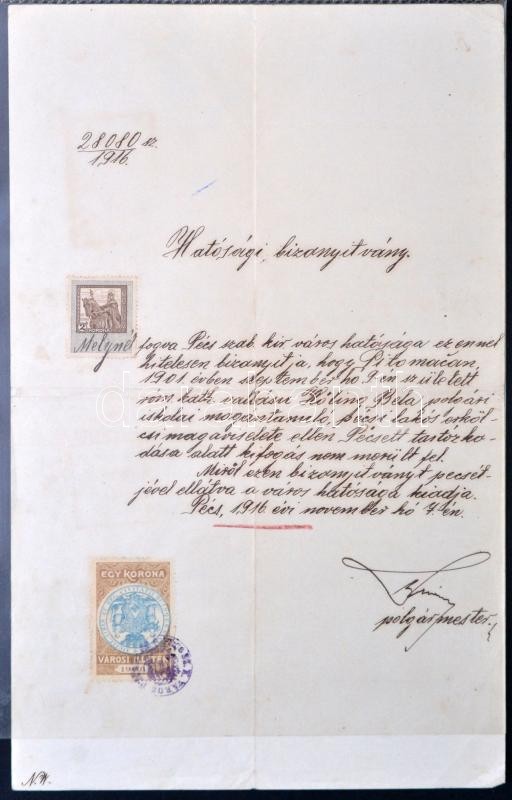 28080 sz.
1916.
Hatósági bizonyítvány.
2 KORONA
Melynél fogva Pécs szab. kir. város hatósága ezennel
hitelesen bizonyítja, hogy Pitomačán
1901. évben szeptember hó én született
róm. kath. vallású Béla polgári
iskolai magántanuló, pécsi lakos erköl-
csi magaviselete ellen Pécsett tartózko-
dása alatt kifogás nem merült fel.
Miről ezen bizonyítványt pecsét-
jével ellátva a város hatósága kiadja.
Pécs, 1916 évi november hó 7-én.
polgármester.
EGY KORONA
VÁROSI ILLETÉK
N.W.